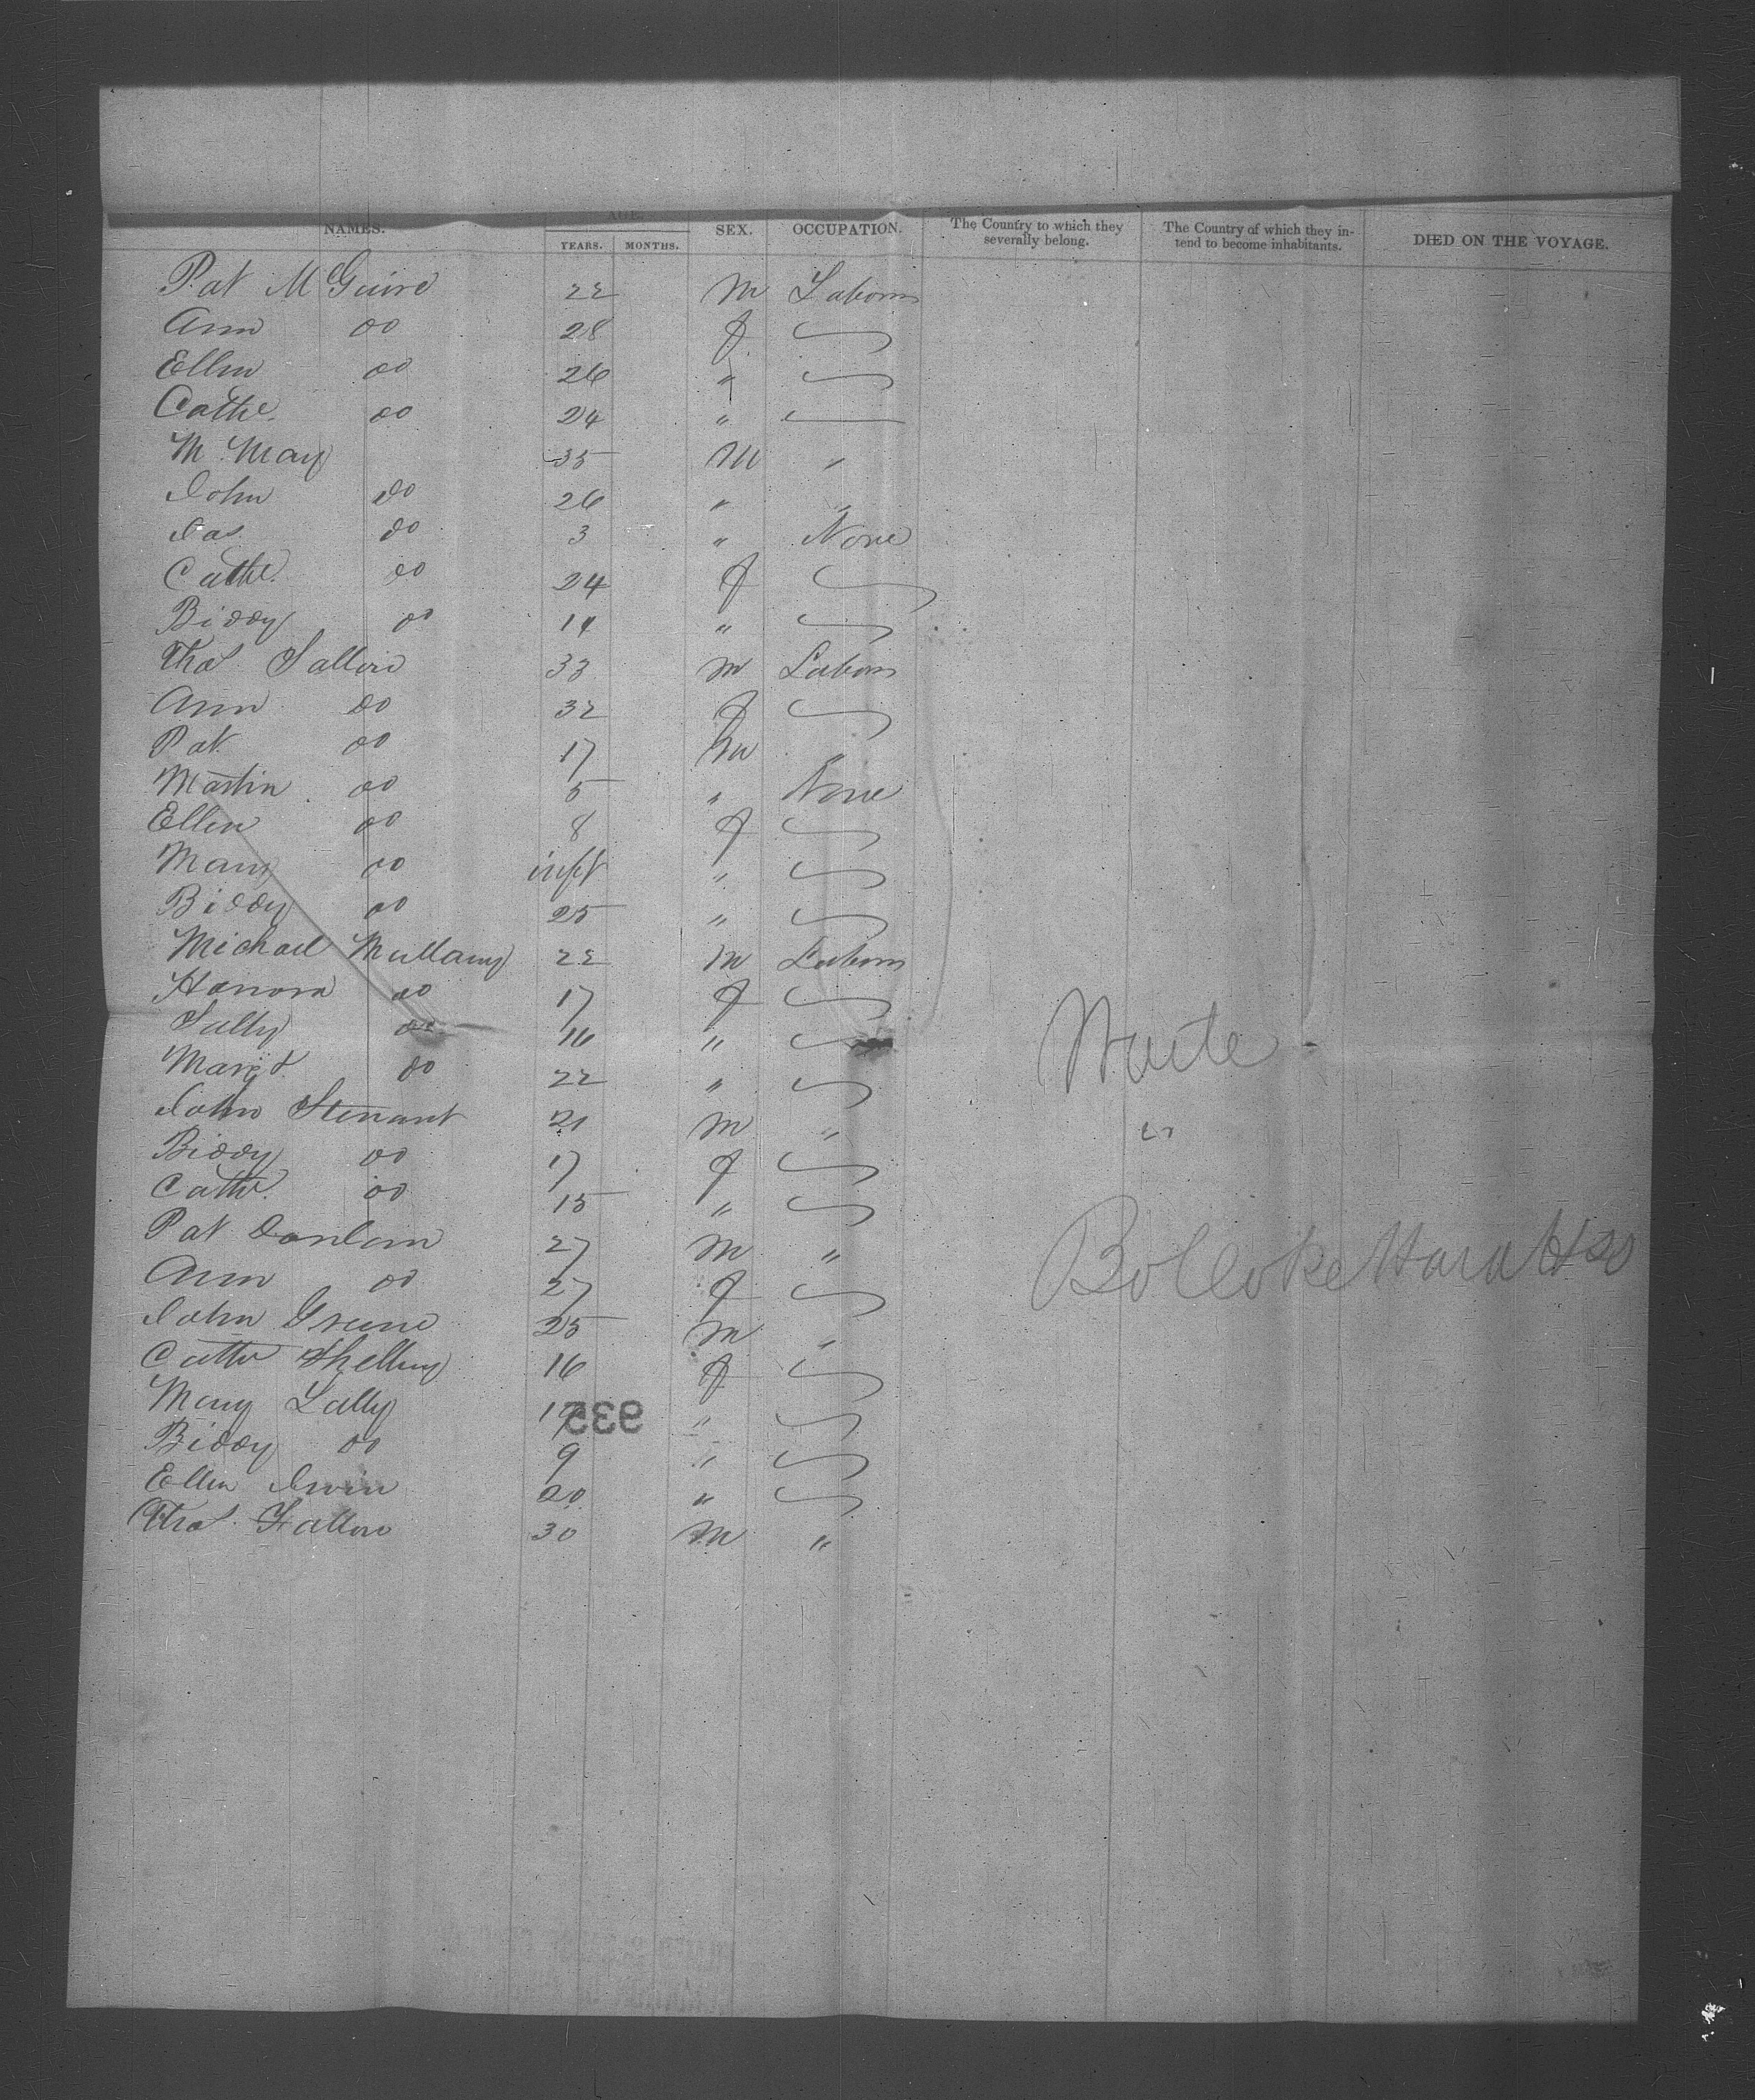 NAMES. AGE. SEX. OCCUPATION. The Country to which they severally belong. The Country of which they intend to become inhabitants. DIED ON THE VOYAGE.
YEARS. MONTHS.
Pat McGuire 22 M Laborer
Ann do 28 f
Ellen do 26 "
Cathe. do 24 "
M May 35 M "
John do 26 " "
Jas. do 3 " None
Cathe. do 24 f
Biddy do 14 "
Thos. Fallon 33 M Laborer
Ann do 32 f
Pat do 17 M "
Martin do 5 " None
Ellen do 8 f
Mary do inft "
Biddy do 25 "
Michael Mullany 22 M Laborer
Hanora do 17 f
Sally do 16 "
Margt do 22 "
John 21 M "
Biddy do 17 f
Cathe. do 15 "
Pat 27 M "
Ann do 27 f
John Greene 25 M "
Cathe 16 f
Mary Lally 17 "
Biddy do 9 "
Ellen Irwin 20 "
Thos. Fallon 30 M "
935